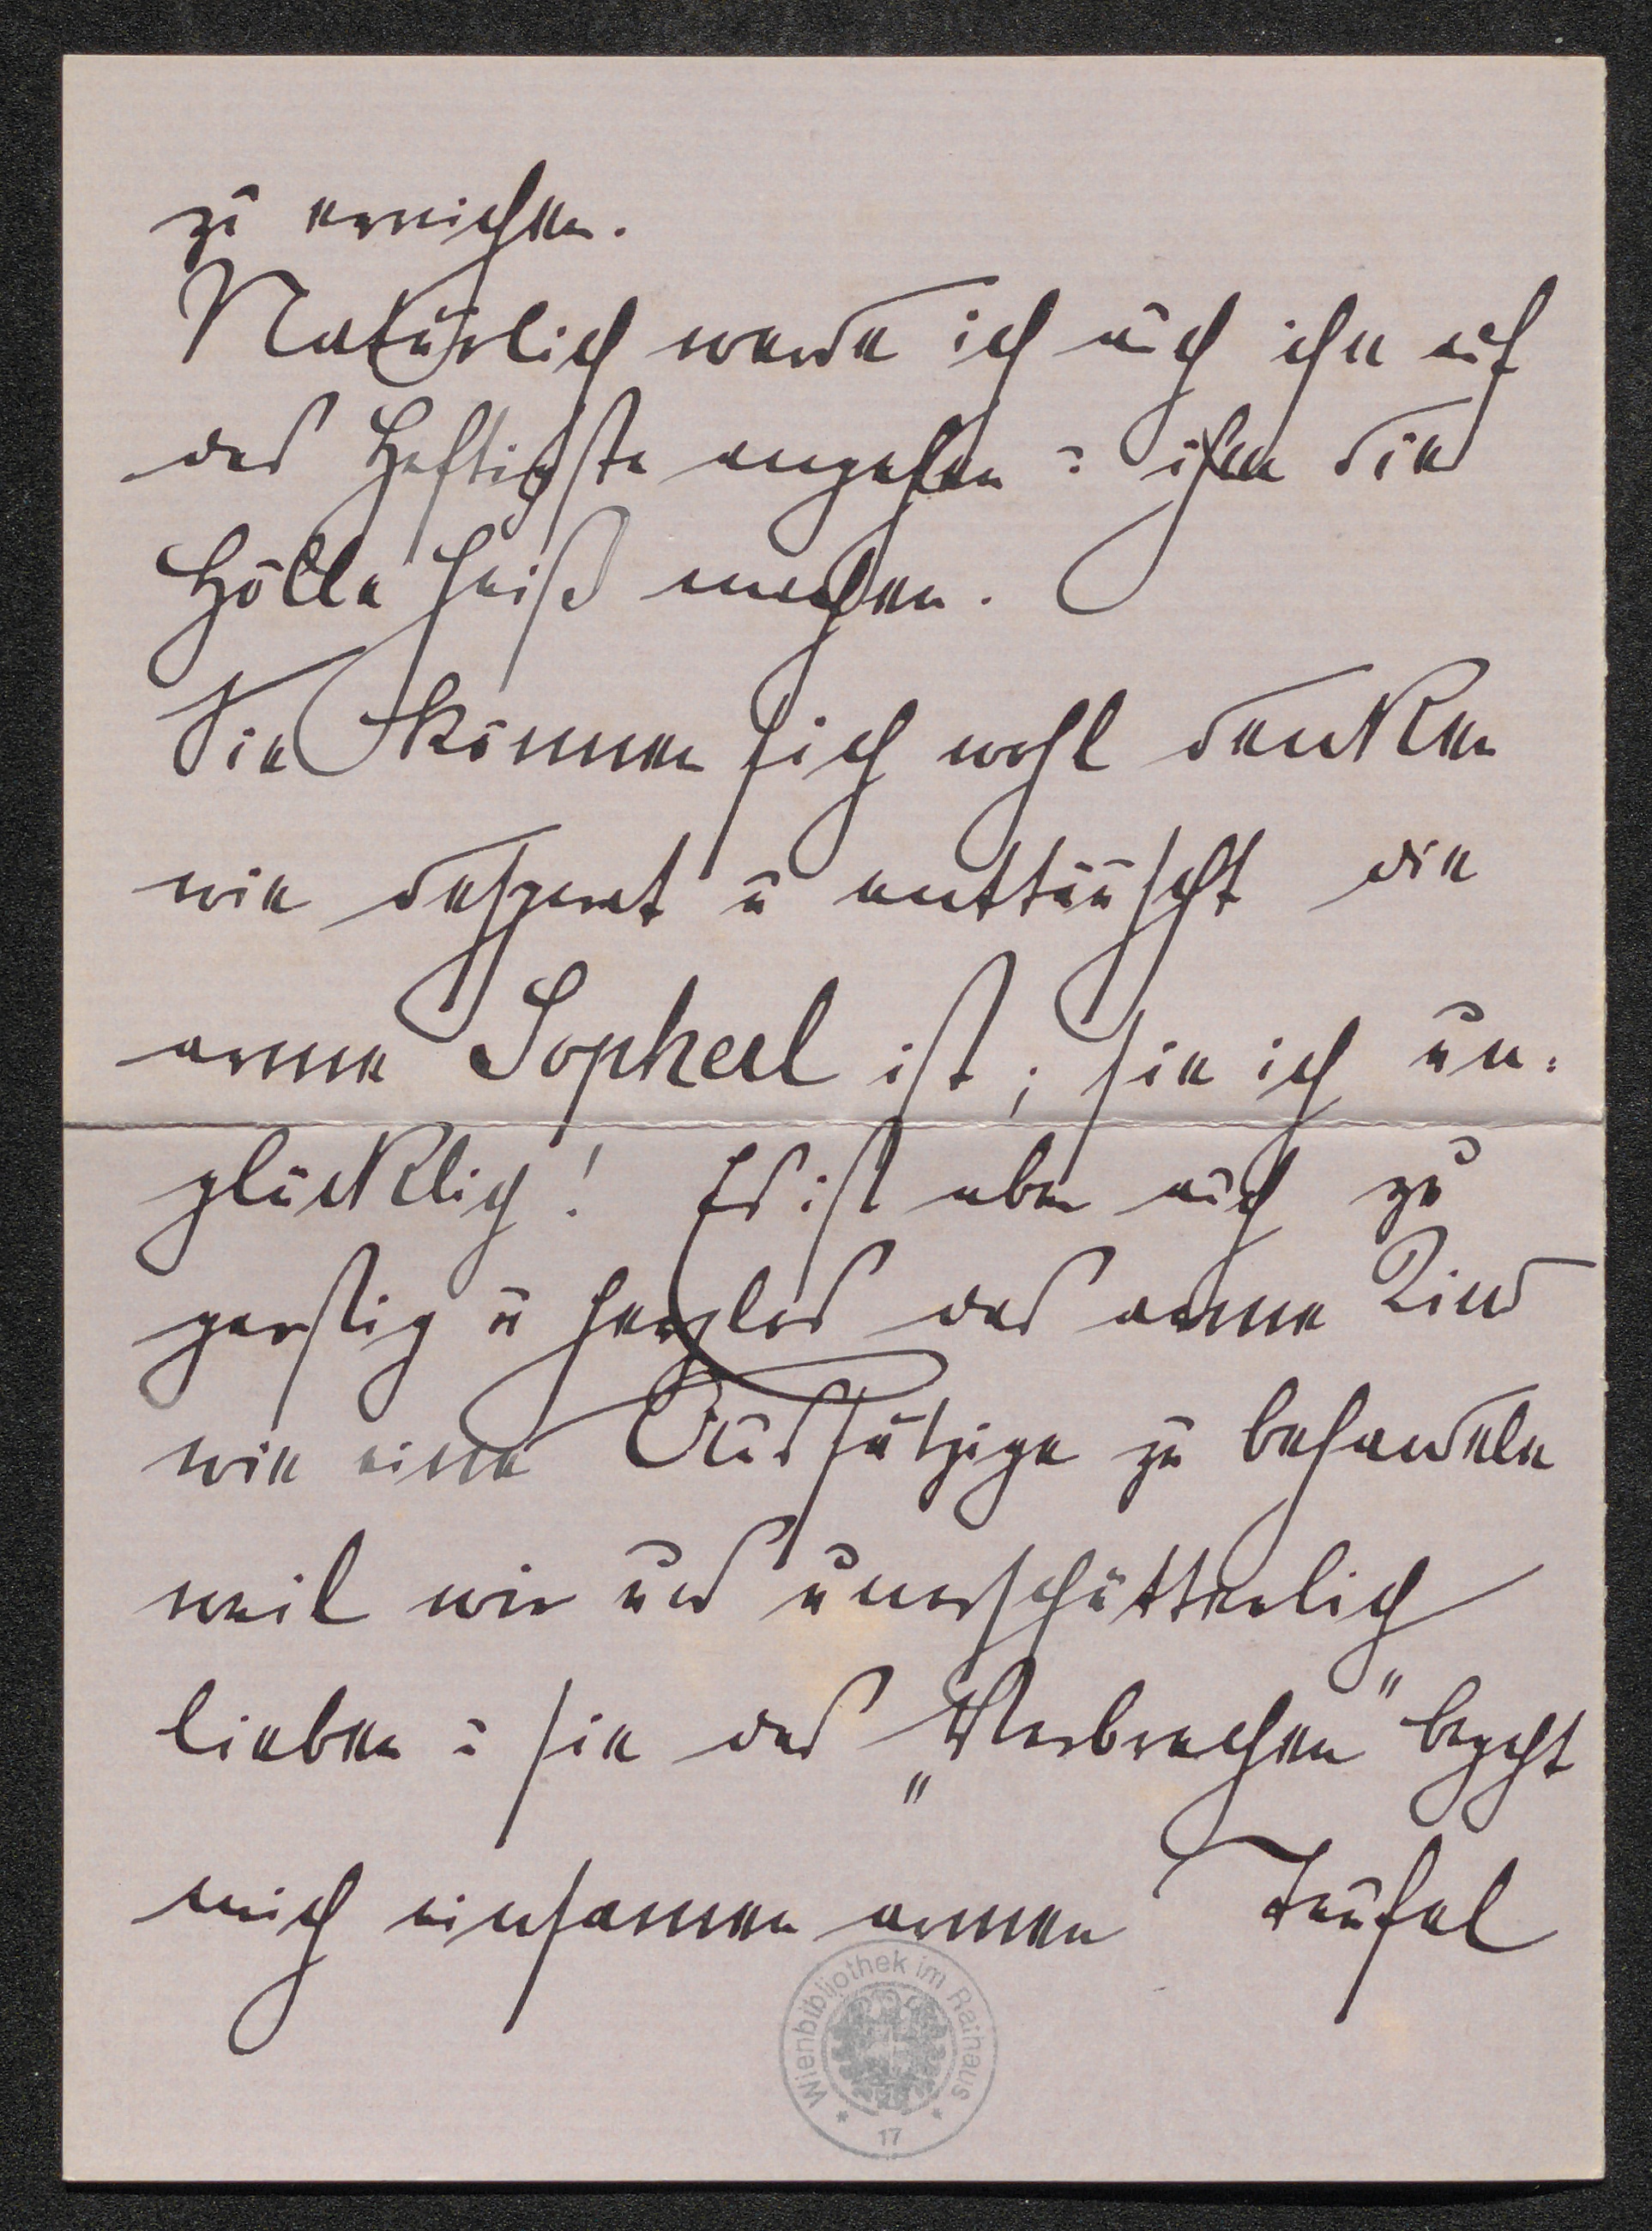 zu erreichen.
Natürlich werde ich auch ihn auf
das Heftigste angehen u ihm die
Hölle heiß machen.
Sie können sich wohl denken
wie desperat u enttäuscht die
arme Sopherl ist; sie ist un-
glücklich! Es ist aber auch zu
garstig u herzlos das arme Kind
wie eine Aussätzige zu behandeln
weil wir uns unerschütterlich
lieben u sie das „Verbrechen" begeht
mich einsamen armen Teufel
Wienbibliothek im Rathaus
* 17 *